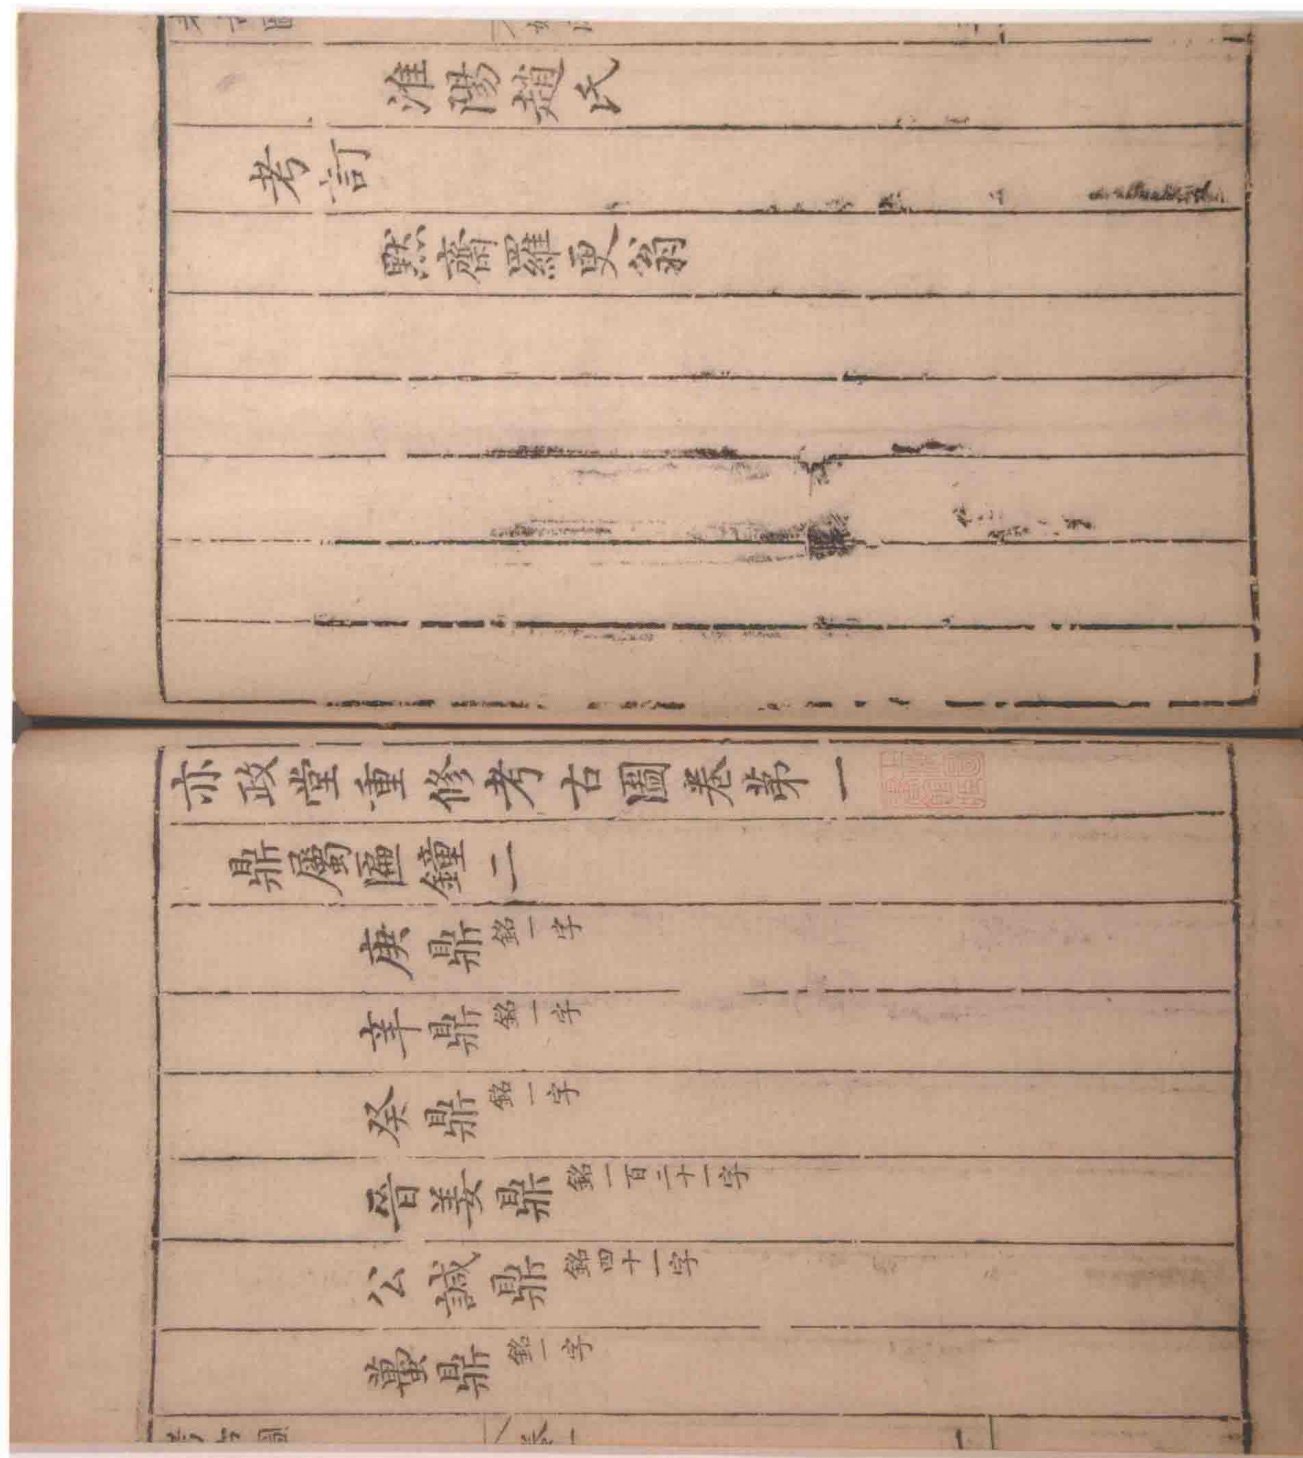 淮陽趙氏
考訂
默齋羅更翁
亦政堂重修考古圖卷第一
鼎屬匾鐘二
庚鼎 銘一字
辛鼎 銘一字
癸鼎 銘一字
晉姜鼎 銘一百二十一字
公諴鼎 銘四十一字
蠆鼎 銘一字
考古圖 卷一 一